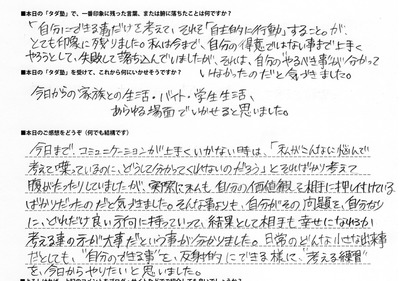 ■本日の「タダ塾」で、一番印象に残った言葉、または腑に落ちたことは何ですか？
「自分にできる事だけを考えて、それを「自主的に行動」することが、
とても印象に残りました。私は今まで、自分の得意ではない事まで上手く
やろうとして、失敗して落ち込んでいましたが、それは、自分のやるべき事が分かって
いなかったのだと気づきました。
■本日の「タダ塾」を受けて、これから何にいかせそうですか？
今日からの家族との生活・バイト・学生生活、
あらゆる場面でいかせると思いました。
■本日のご感想をどうぞ（何でも結構です）
今日まで、コミュニケーションが上手くいかない時は、「私がこんなに悩んで
考えて喋っているのに、どうして分かってくれないのだろう」とそればかり考えて
腹がたったりしていましたが、実際は私も、自分の価値観を相手に押し付けている
ばかりだったのだと気づきました。そんな事よりも、自分がその問題を、自分なり
に、どれだけ良い方向に持っていって、結果として相手も幸せになれるか
考える事の方が大事だという事が分かりました。日常のどんな小さな出来事
だとしても、"自分のできる事"を、反射的にできる様に、"考える練習"
を、今日からやりたいと思いました。